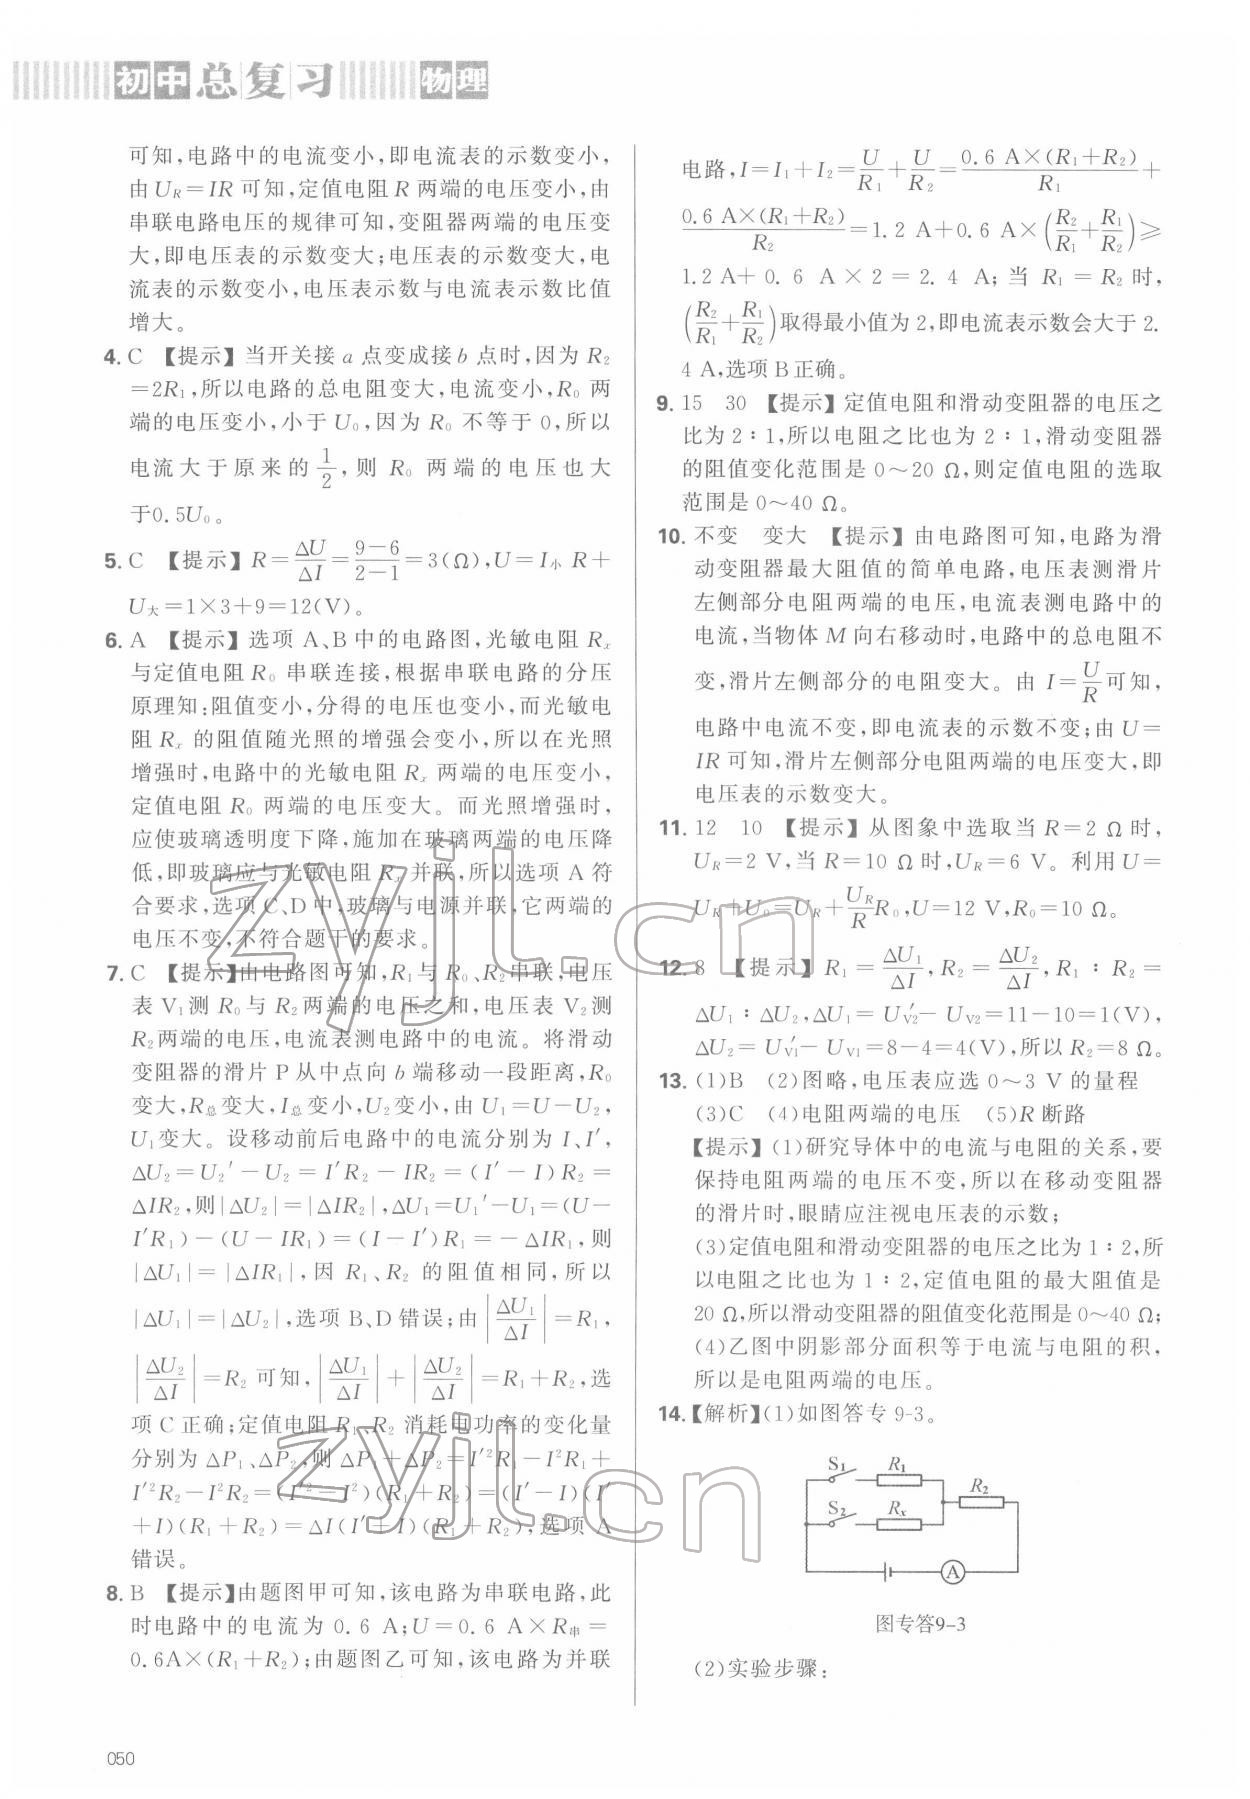 初中总复习 物理
可知,电路中的电流变小,即电流表的示数变小,
由U_R=IR可知,定值电阻R两端的电压变小,由
串联电路电压的规律可知,变阻器两端的电压变
大,即电压表的示数变大;电压表示数变大,电
流表的示数变小,电压表示数与电流表示数比值
增大。
4. C 【提示】当开关接a点变成接b点时,因为R₂
=2R₁,所以电路的总电阻变大,电流变小,R₀两
端的电压变小,小于U₀,因为R₀不等于0,所以
电流大于原来的1/2,则R₀两端的电压也大
于0.5U₀。
5. C 【提示】R=ΔU/ΔI=(9-6)/(2-1)=3(Ω),U=I小R+
U大=1×3+9=12(V)。
6. A 【提示】选项A、B中的电路图,光敏电阻Rₓ
与定值电阻R₀串联连接,根据串联电路的分压
原理知:阻值变小,分得的电压也变小,而光敏电
阻Rₓ的阻值随光照的增强会变小,所以在光照
增强时,电路中的光敏电阻Rₓ两端的电压变小,
定值电阻R₀两端的电压变大。而光照增强时,
应使玻璃透明度下降,施加在玻璃两端的电压降
低,即玻璃应与光敏电阻Rₓ并联,所以选项A符
合要求,选项C、D中,玻璃与电源并联,它两端的
电压不变,不符合题干的要求。
7. C 【提示】由电路图可知,R₁与R₀、R₂串联,电压
表V₁测R₀与R₂两端的电压之和,电压表V₂测
R₂两端的电压,电流表测电路中的电流。将滑动
变阻器的滑片P从中点向b端移动一段距离,R₀
变大,R总变大,I总变小,U₂变小,由U₁=U-U₂,
U₁变大。设移动前后电路中的电流分别为I、I′,
ΔU₂=U₂′-U₂=I′R₂-IR₂=(I′-I)R₂=
ΔIR₂,则|ΔU₂|=|ΔIR₂|,ΔU₁=U₁′-U₁=(U-
I′R₁)-(U-IR₁)=(I-I′)R₁=-ΔIR₁,则
|ΔU₁|=|ΔIR₁|,因R₁、R₂的阻值相同,所以
|ΔU₁|=|ΔU₂|,选项B、D错误;由|ΔU₁/ΔI|=R₁,
|ΔU₂/ΔI|=R₂可知,|ΔU₁/ΔI|+|ΔU₂/ΔI|=R₁+R₂,选
项C正确;定值电阻R₁、R₂消耗电功率的变化量
分别为ΔP₁、ΔP₂,则ΔP₁+ΔP₂=I′²R₁-I²R₁+
I′²R₂-I²R₂=(I′²-I²)(R₁+R₂)=(I′-I)(I′
+I)(R₁+R₂)=ΔI(I′+I)(R₁+R₂),选项A
错误。
8. B 【提示】由题图甲可知,该电路为串联电路,此
时电路中的电流为0.6 A;U=0.6 A×R串=
0.6A×(R₁+R₂);由题图乙可知,该电路为并联
电路,I=I₁+I₂=U/R₁+U/R₂=0.6 A×(R₁+R₂)/R₁+
0.6 A×(R₁+R₂)/R₂=1.2 A+0.6 A×(R₂/R₁+R₁/R₂)≥
1.2 A+0.6 A×2=2.4 A;当R₁=R₂时,
(R₂/R₁+R₁/R₂)取得最小值为2,即电流表示数会大于2.
4 A,选项B正确。
9. 15 30 【提示】定值电阻和滑动变阻器的电压之
比为2∶1,所以电阻之比也为2∶1,滑动变阻器
的阻值变化范围是0～20 Ω,则定值电阻的选取
范围是0～40 Ω。
10. 不变 变大 【提示】由电路图可知,电路为滑
动变阻器最大阻值的简单电路,电压表测滑片
左侧部分电阻两端的电压,电流表测电路中的
电流,当物体M向右移动时,电路中的总电阻不
变,滑片左侧部分的电阻变大。由I=U/R可知,
电路中电流不变,即电流表的示数不变;由U=
IR可知,滑片左侧部分电阻两端的电压变大,即
电压表的示数变大。
11. 12 10 【提示】从图象中选取当R=2 Ω时,
U_R=2 V,当R=10 Ω时,U_R=6 V。利用U=
U_R+U₀=U_R+(U_R/R)R₀,U=12 V,R₀=10 Ω。
12. 8 【提示】R₁=ΔU₁/ΔI,R₂=ΔU₂/ΔI,R₁∶R₂=
ΔU₁∶ΔU₂,ΔU₁=U′V2-UV2=11-10=1(V),
ΔU₂=U′V1-UV1=8-4=4(V),所以R₂=8 Ω。
13. (1)B (2)图略,电压表应选0～3 V的量程
(3)C (4)电阻两端的电压 (5)R断路
【提示】(1)研究导体中的电流与电阻的关系,要
保持电阻两端的电压不变,所以在移动变阻器
的滑片时,眼睛应注视电压表的示数;
(3)定值电阻和滑动变阻器的电压之比为1∶2,所
以电阻之比也为1∶2,定值电阻的最大阻值是
20 Ω,所以滑动变阻器的阻值变化范围是0～40 Ω;
(4)乙图中阴影部分面积等于电流与电阻的积,
所以是电阻两端的电压。
14. 【解析】(1)如图答专9-3。
S₁ R₁
R₂
S₂ Rₓ
A
图专答9-3
(2)实验步骤:
050
zyjl.cn
zyjl.cn